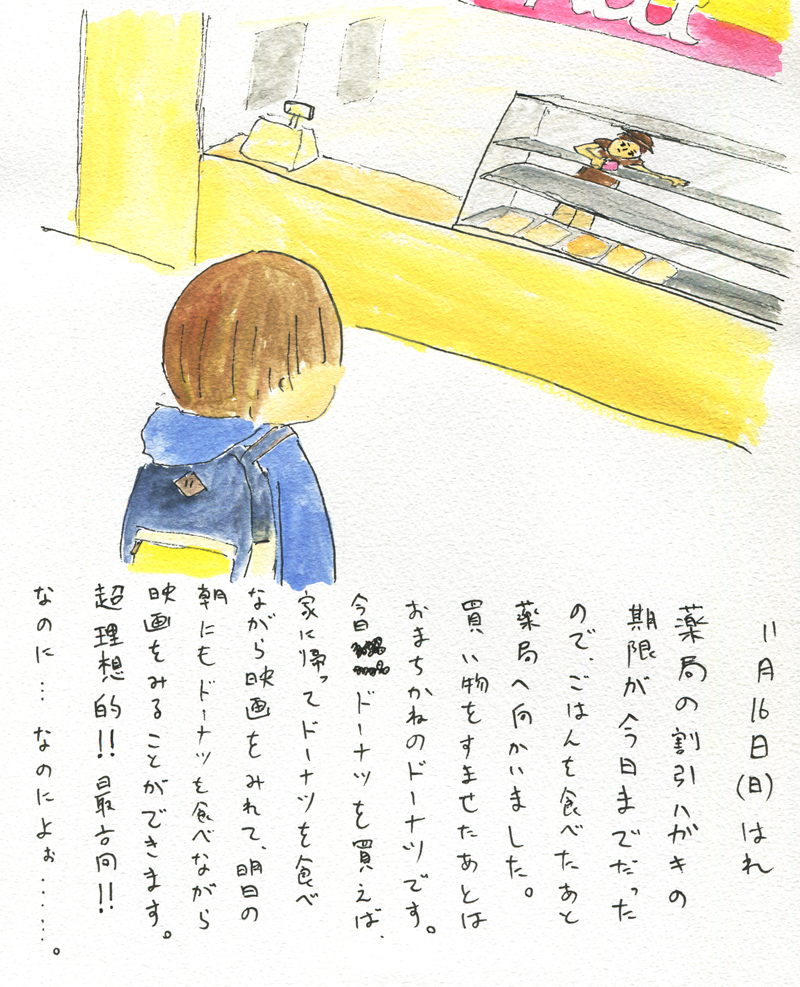 11月16日(日)はれ
薬局の割引ハガキの
期限が今日までだった
ので、ごはんを食べたあと
薬局へ向かいました。
買い物をすませたあとは
おまちかねのドーナツです。
今日ドーナツを買えば、
家に帰ってドーナツを食べ
ながら映画をみれて、明日の
朝にもドーナツを食べながら
映画をみることができます。
超理想的!!最高!!
なのに…なのによぉ……。